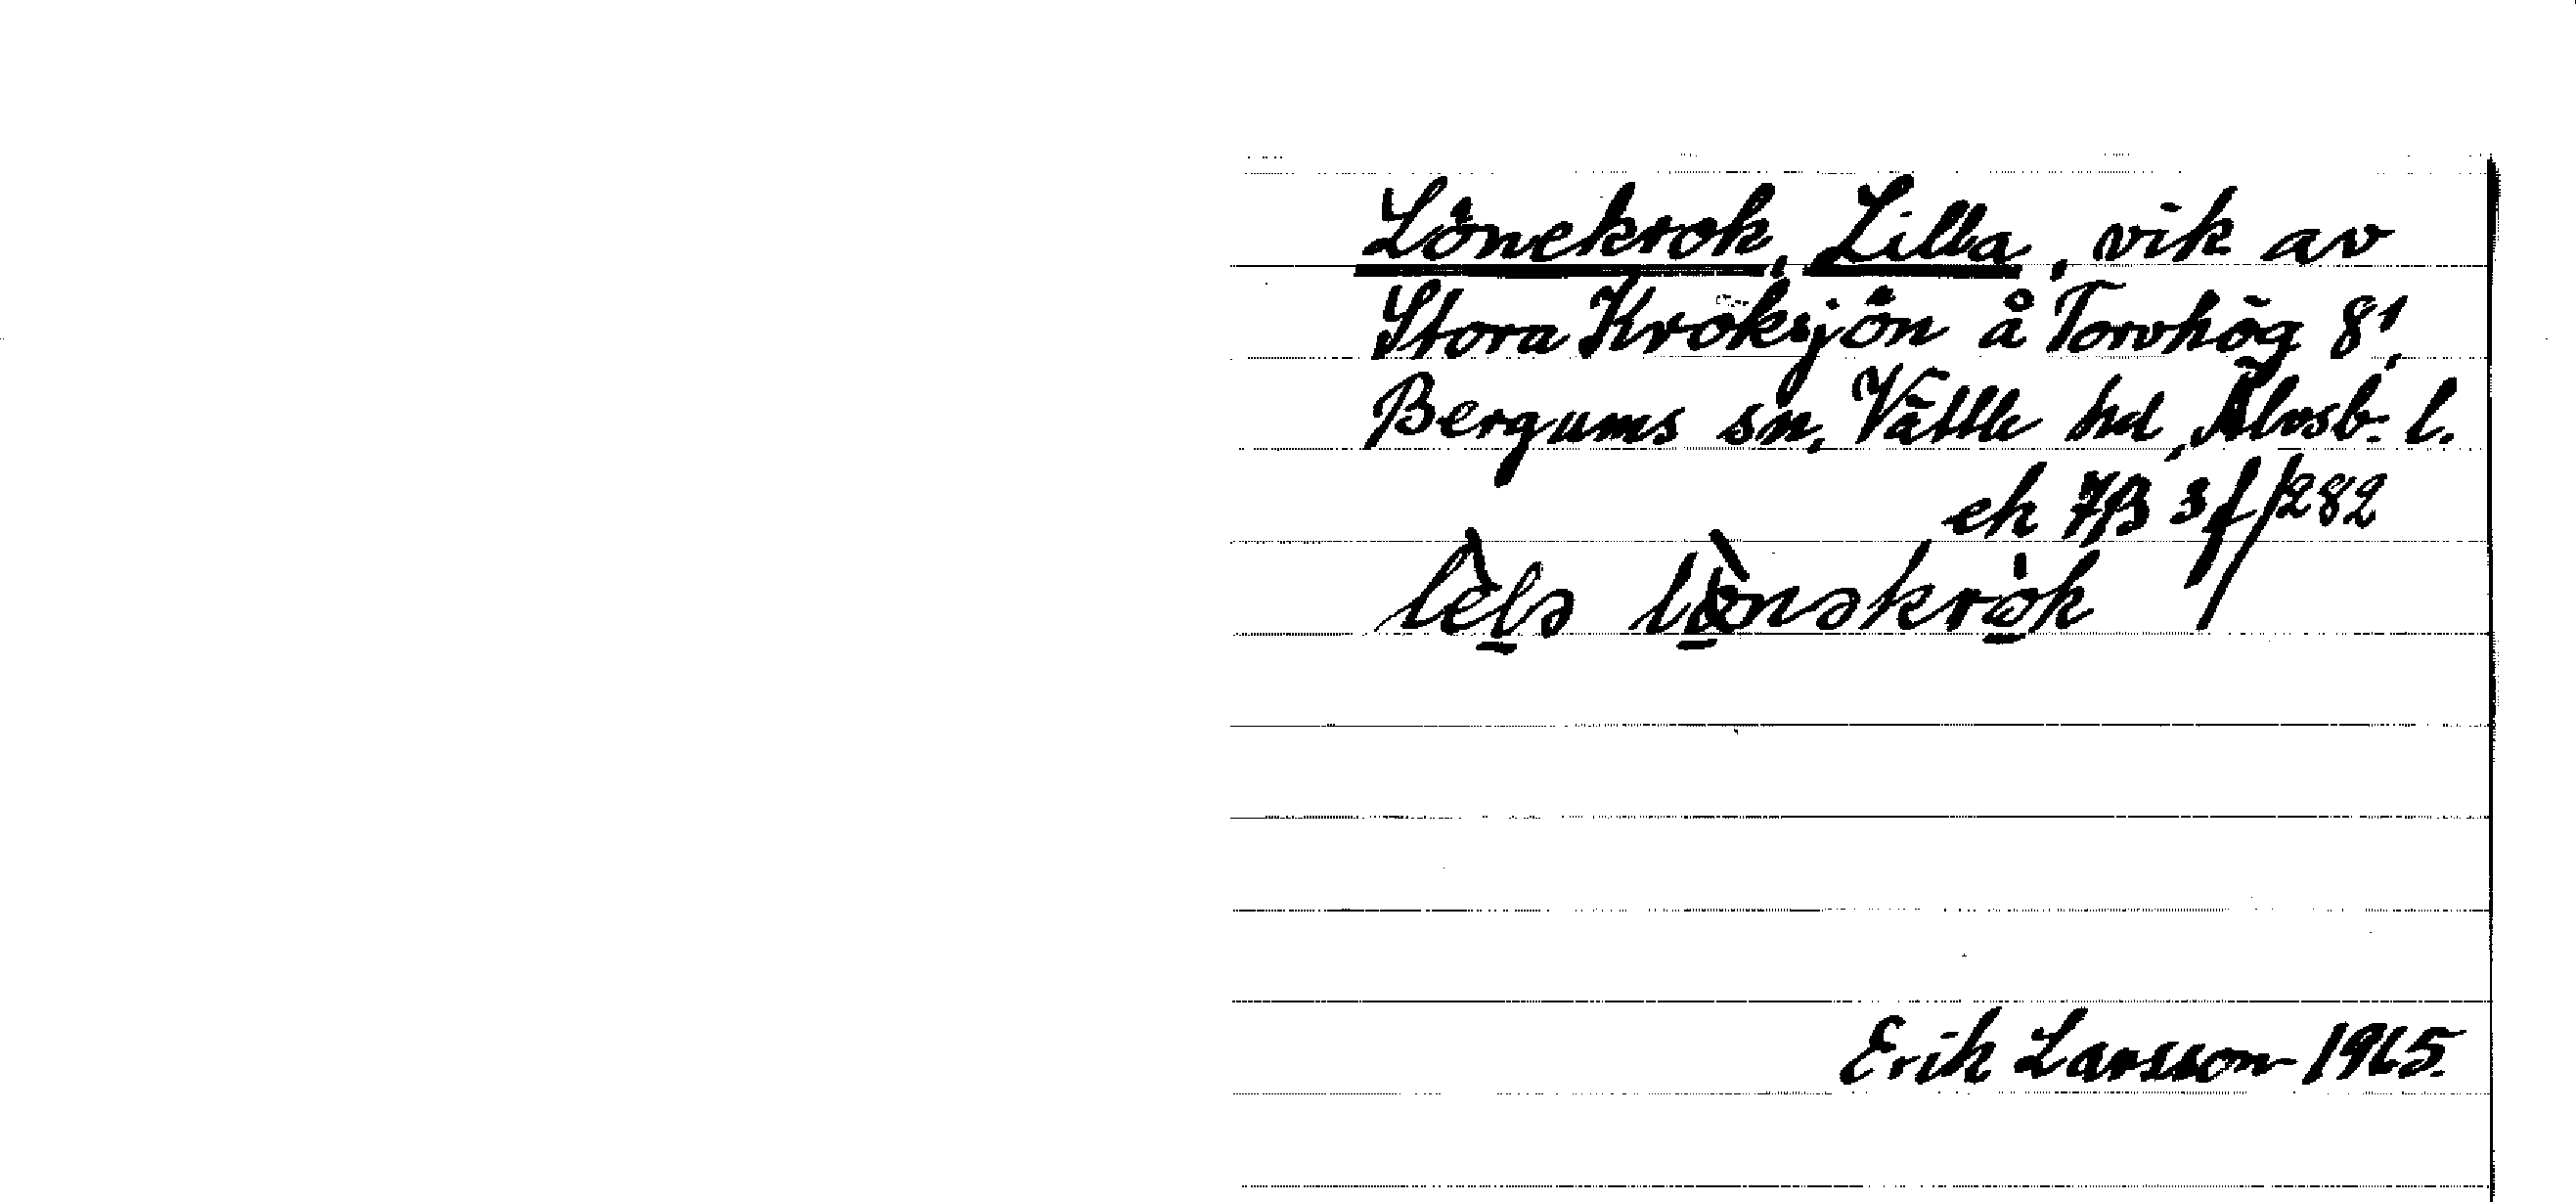 Lönekrok, Lilla, vik av
Stora Kroksjön å Torvhög 8¹,
Bergums sn, Vättle hd, Älvsb. l.
ek 7B 3f/282
lèlə lònəkròk
Erik Larsson 1965.